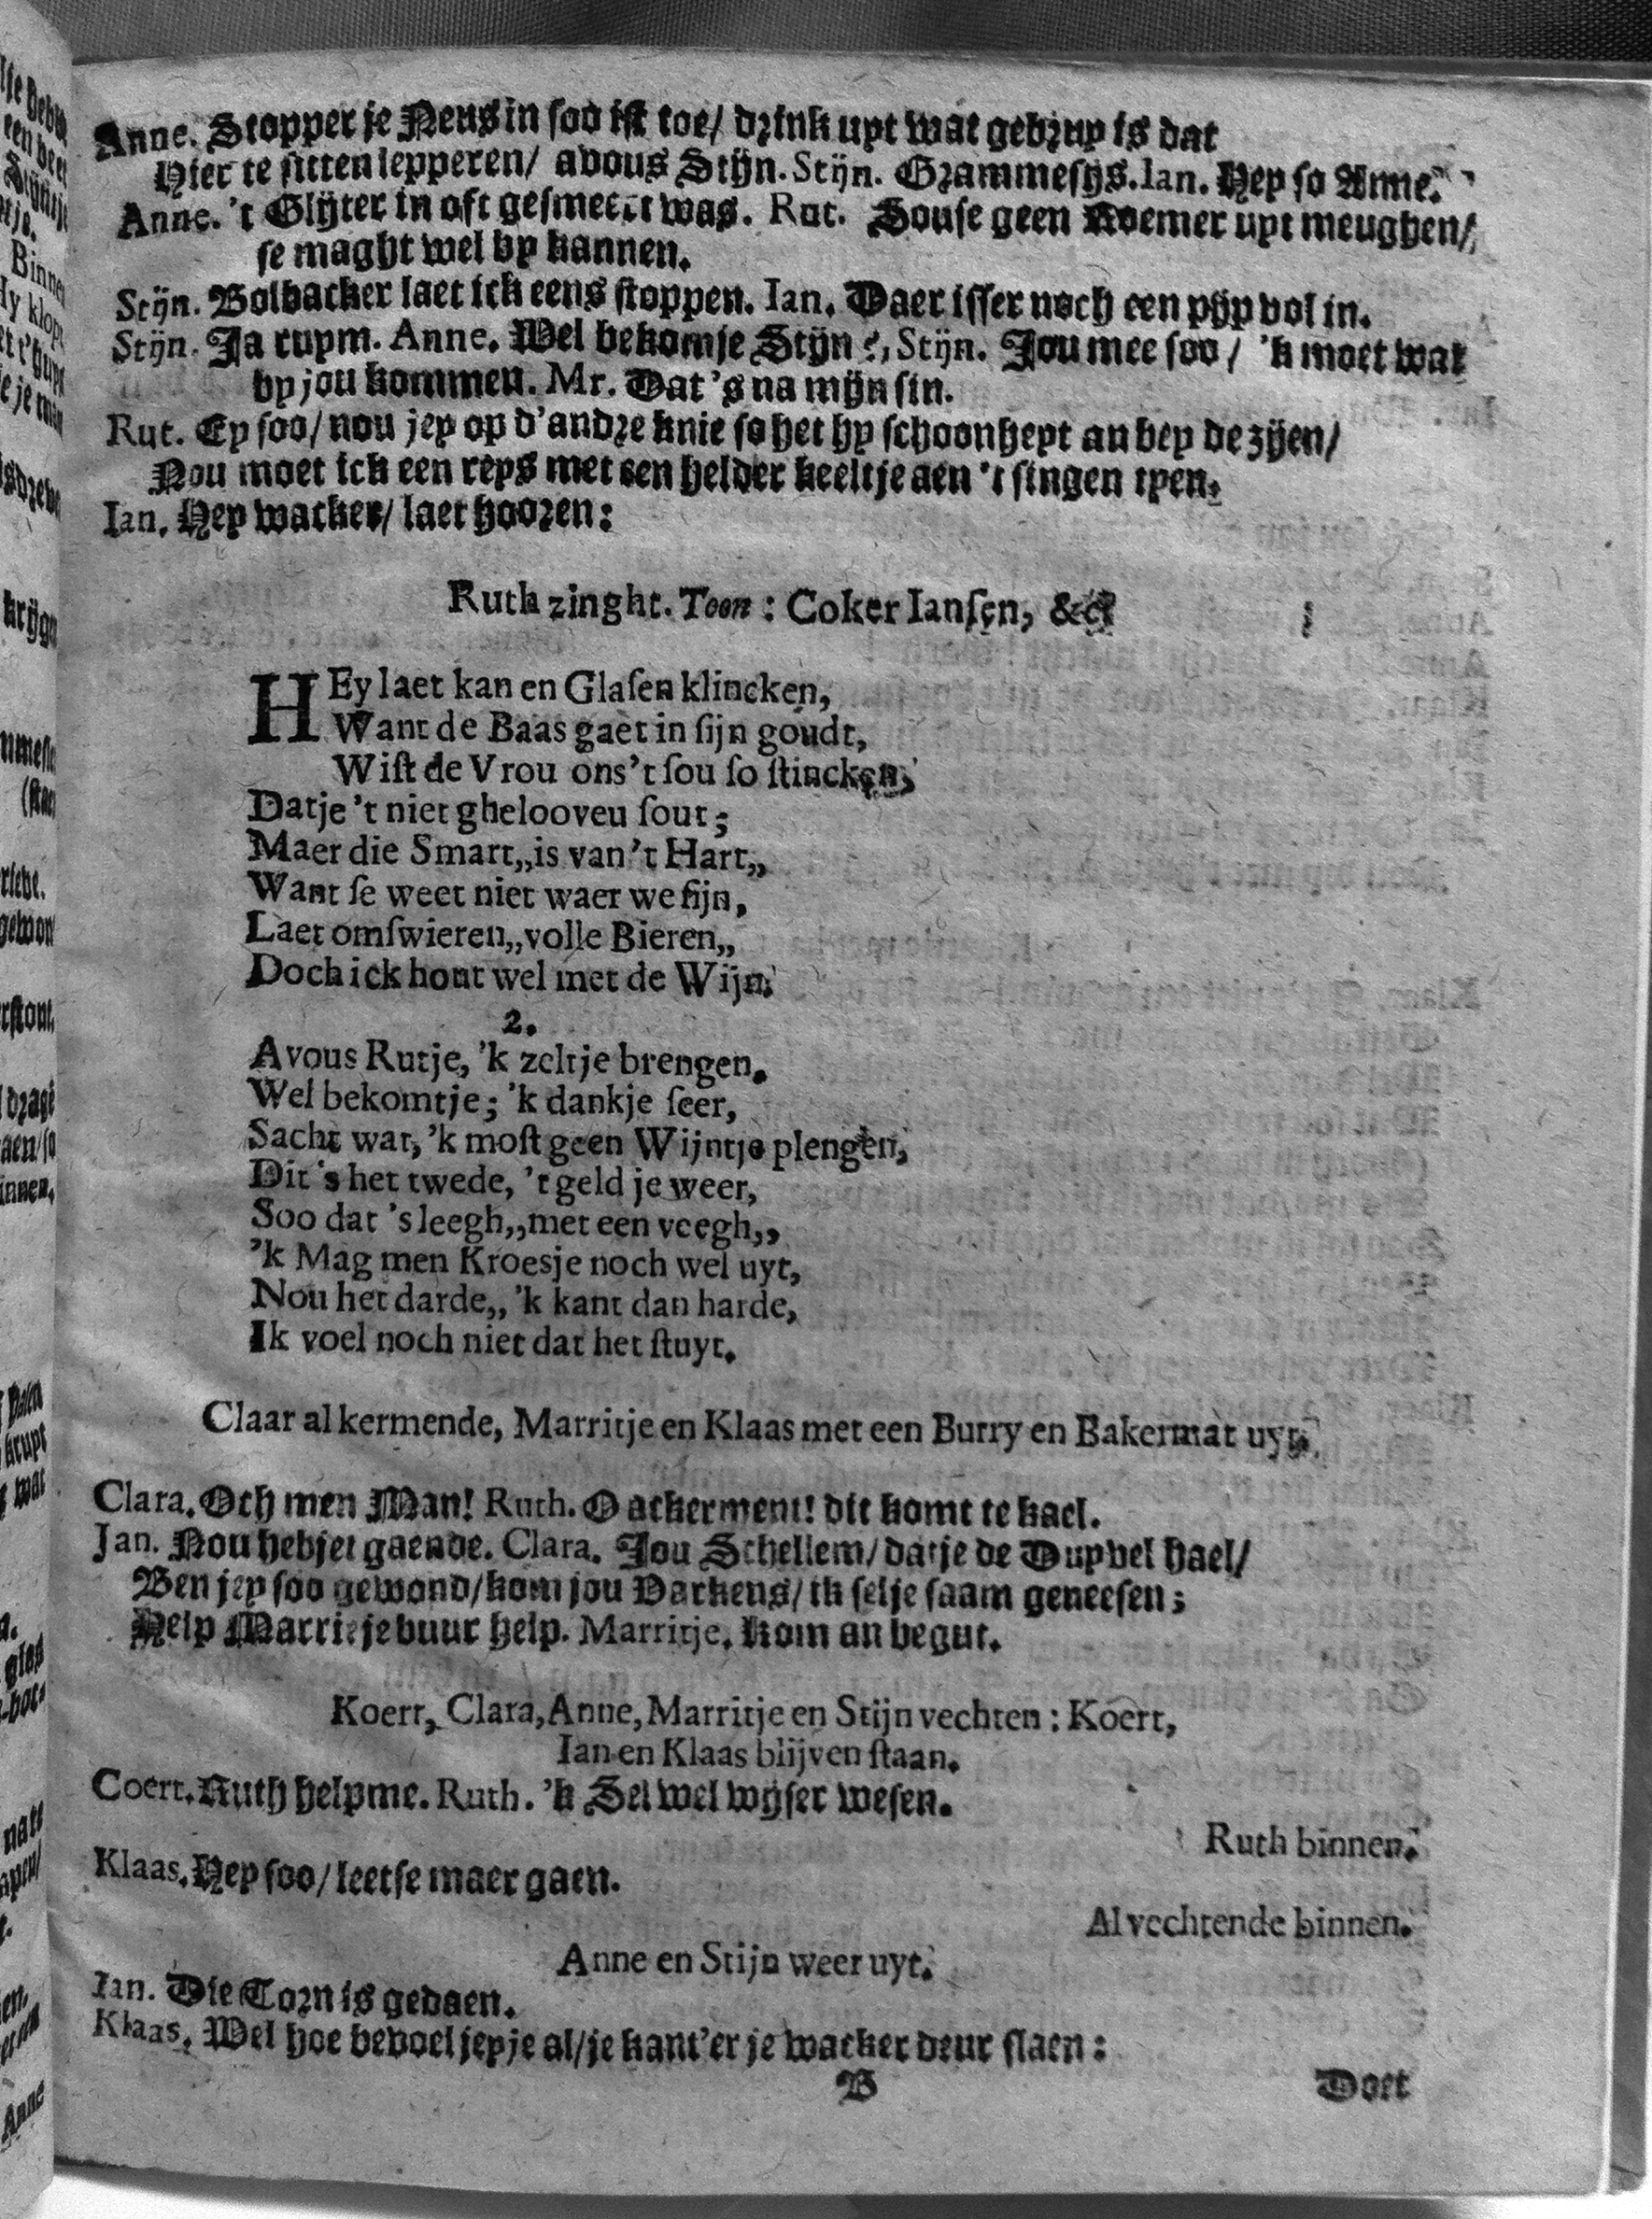 Anne. Stopper je Neus in soo ist toe/ drink uyt wat gebruy is dat
Hier te sitten lepperen/ avous Stijn. Stijn. Grammesijs. Ian. Hey so Anne.
Anne. 't Glijter in oft gesmeert was. Rut. Souse geen Roemer uyt meughen/
se maght wel by kannen.
Stijn. Bolbacker laet ick eens stoppen. Ian. Daer isser noch een pijp vol in.
Stijn. Ja ruym. Anne. Wel bekomje Stijn?, Stijn. Jou mee soo/ 'k moet wat
by jou kommen. Mr. Dat 's na mijn sin.
Rut. Ey soo/ nou jey op d'andre knie so het hy schoonheyt an bey de zijen/
Nou moet ick een reys met een helder keeltje aen 't singen tyen.
Ian. Hey wacker/ laet hooren:
Ruth zinght. Toon: Coker Iansen, &c
HEy laet kan en Glasen klincken,
Want de Baas gaet in sijn goudt,
Wist de Vrou ons 't sou so stincken,
Datje 't niet ghelooveu sout;
Maer die Smart,, is van 't Hart,,
Want se weet niet waer we sijn,
Laet omswieren,, volle Bieren,,
Doch ick hout wel met de Wijn.
2.
Avous Rutje, 'k zeltje brengen.
Wel bekomtje; 'k dankje seer,
Sacht wat, 'k most geen Wijntje plengen,
Dit 's het twede, 't geld je weer,
Soo dat 's leegh,, met een veegh,,
'k Mag men Kroesje noch wel uyt,
Nou het darde,, 'k kant dan harde,
Ik voel noch niet dat het stuyt.
Claar al kermende, Marritje en Klaas met een Burry en Bakermat uyt.
Clara. Och men Man! Ruth. O ackerment! dit komt te kael.
Jan. Nou hebjet gaende. Clara. Jou Schellem/ datje de Duyvel hael/
Ben jey soo gewond/ kom jou Varkens/ ik selje saam geneesen;
Help Marritje buur help. Marritje. Kom an begut.
Koert, Clara, Anne, Marritje en Stijn vechten: Koert,
Ian en Klaas blijven staan.
Coert. Ruth help me. Ruth. 'k Sel wel wijser wesen.
Ruth binnen.
Klaas. Hey soo/ leetse maer gaen.
Al vechtende binnen.
Anne en Stijn weer uyt.
Ian. Die Torn is gedaen.
Klaas. Wel hoe bevoel jey je al/ je kant'er je wacker deur slaen:
B
Doet